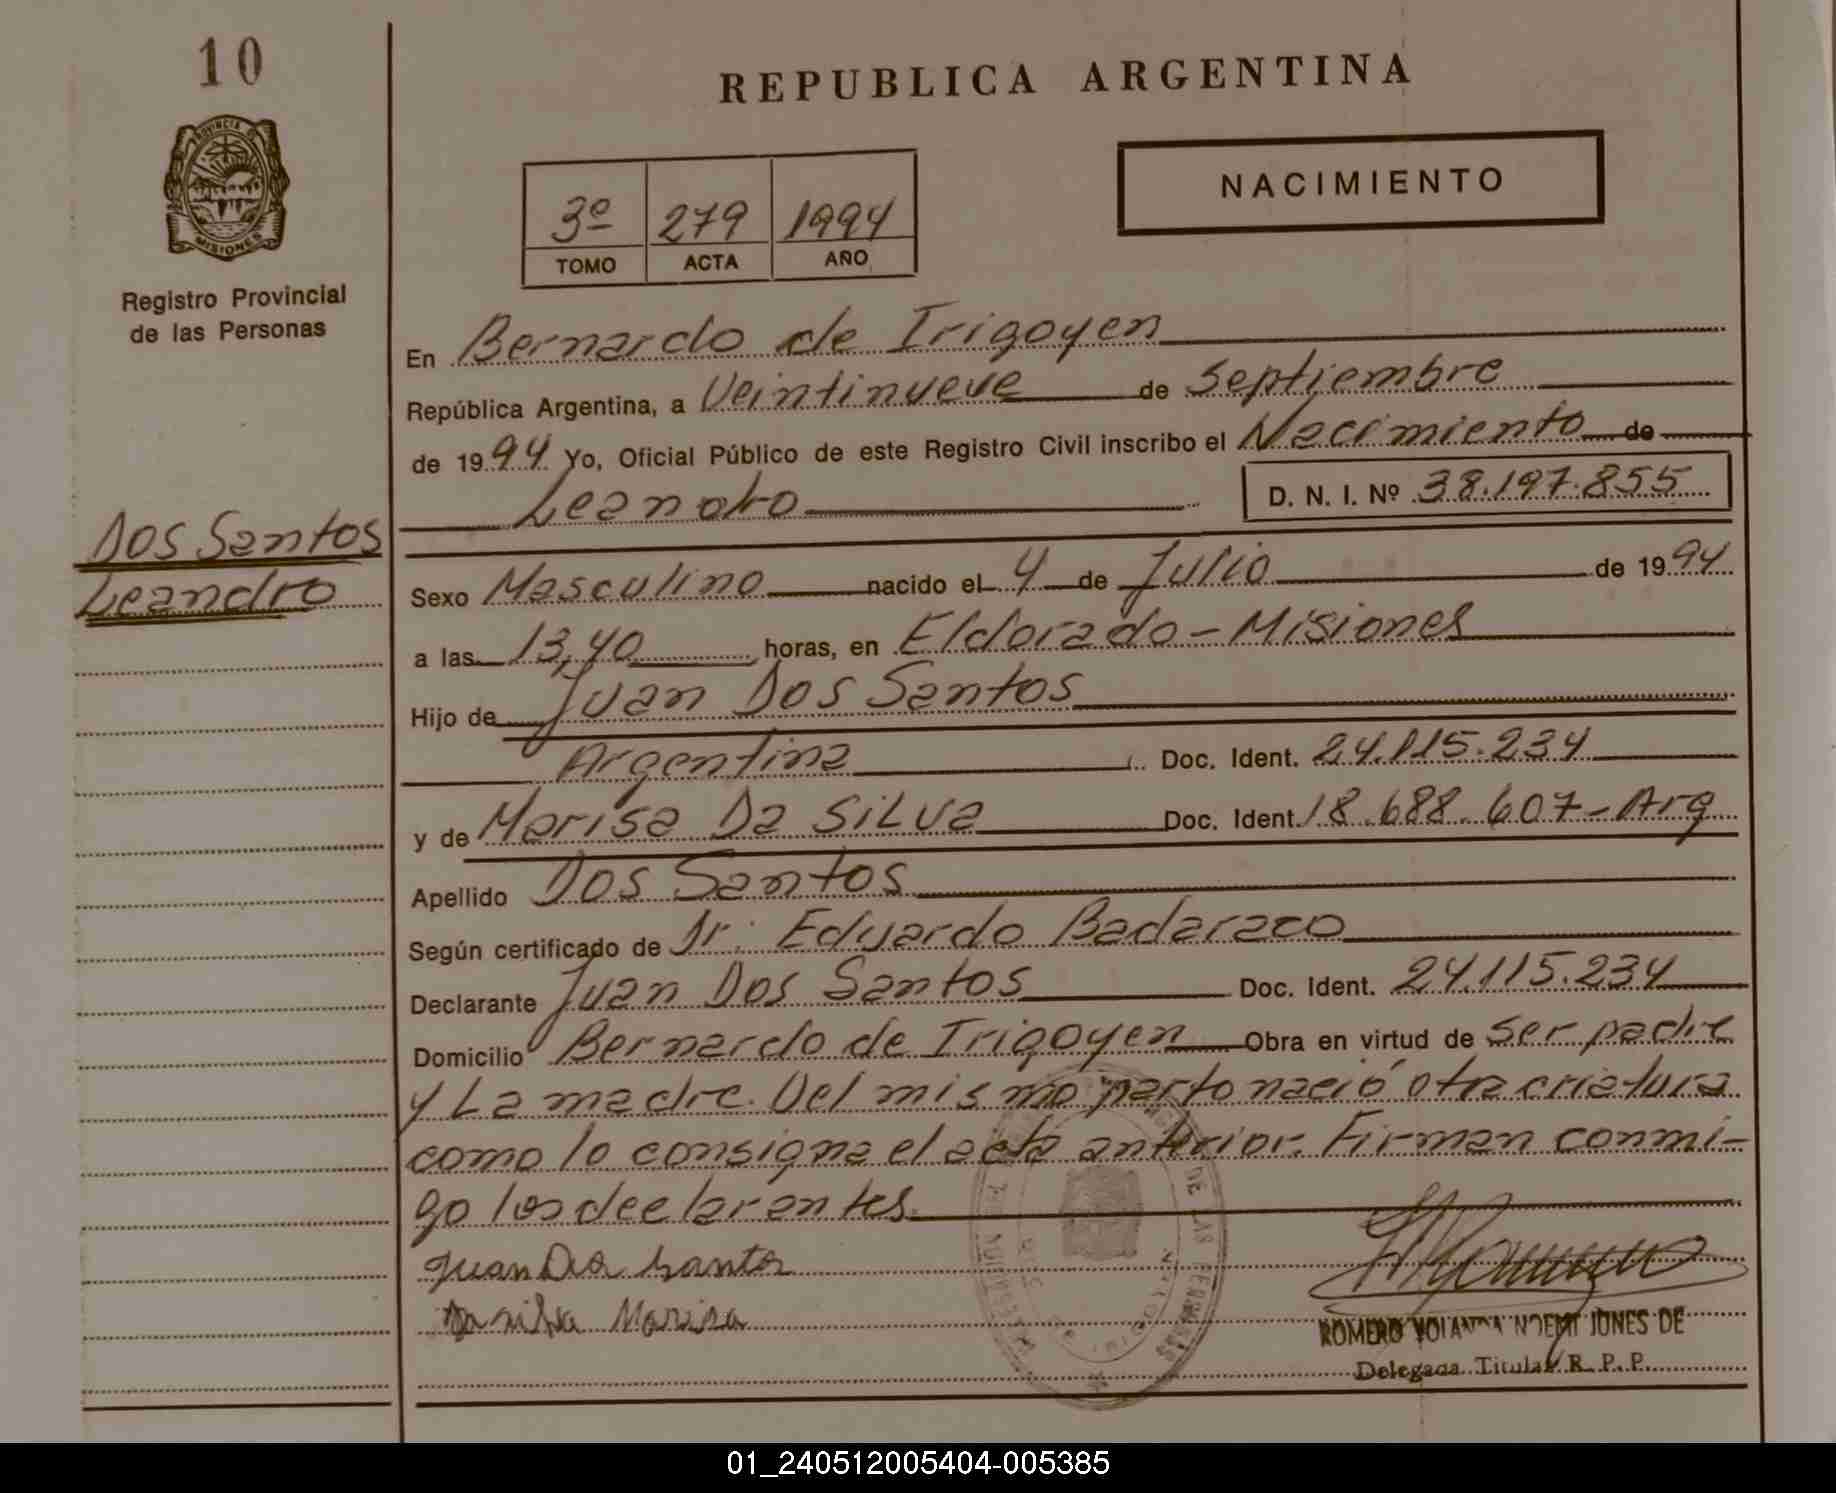 10
REPUBLICA ARGENTINA
PROVINCIA DE
MISIONES
Registro Provincial
de las Personas
NACIMIENTO
3º 279 1994
TOMO ACTA AÑO
En Bernardo de Irigoyen
República Argentina, a Veintinueve de Septiembre
de 1994 Yo, Oficial Público de este Registro Civil inscribo el Nacimiento de
Leandro D. N. I. Nº 38.197.855
Dos Santos
Leandro
Sexo Masculino nacido el 4 de Julio de 1994
a las 13,40 horas, en Eldorado - Misiones
Hijo de Juan Dos Santos
Argentina Doc. Ident. 24.115.234
y de Marisa Da Silva Doc. Ident. 18.688.607 - Arg
Apellido Dos Santos
Según certificado de Dr: Eduardo Badaraco
Declarante Juan Dos Santos Doc. Ident. 24.115.234
Domicilio Bernardo de Irigoyen Obra en virtud de ser padre
y La madre. Del mismo parto nació otra criatura
como lo consigna el acta anterior. Firman conmi-
go los declarantes.
Juan Dos Santos
Da silva Marisa
DE LAS PERSONAS
ROMERO YOLANDA NOEMI JONES DE
Delegada Titular R. P. P.
01_240512005404-005385